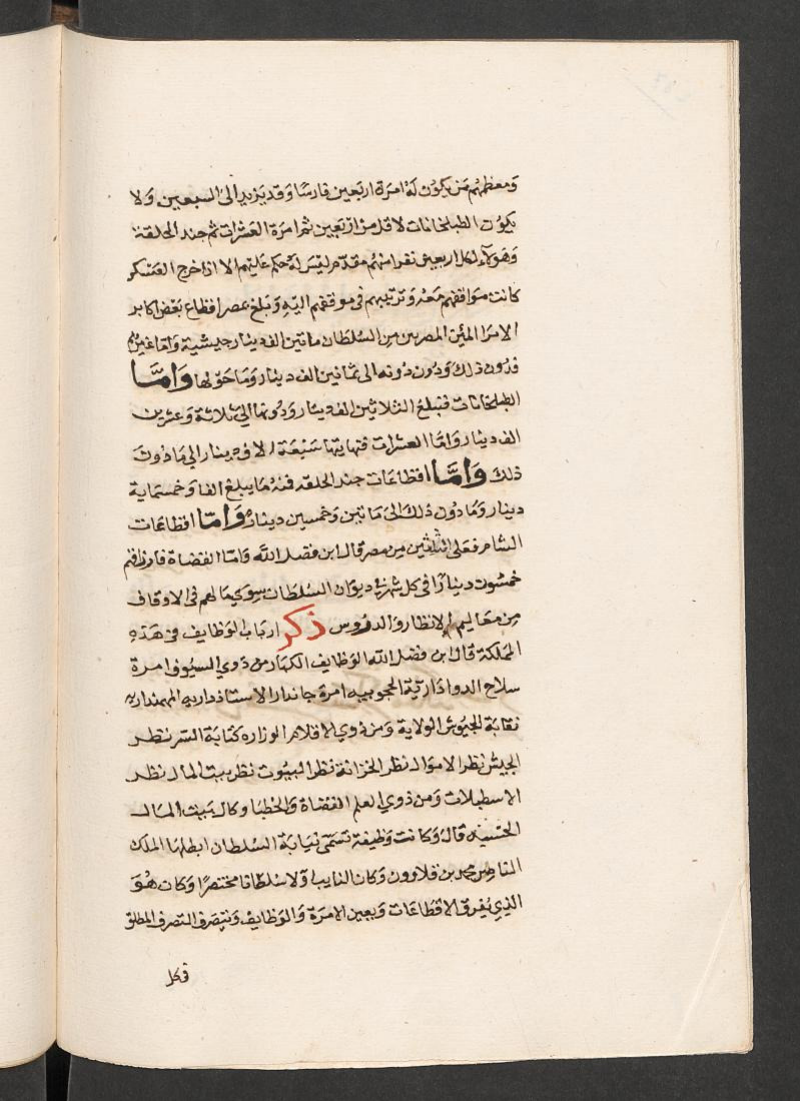 ومعظمهم من يكون له امرة اربعين فارسا وقد يزيد الى السبعين ولا
يكون الطبلخانات لاقل من اربعين ثم امرة العشرات ثم جند الحلقة
وهولاء لكل اربعين نفرا منهم مقدم ليس له حكم عليهم الا اذا خرج العسكر
كانت مواقفهم معه وترتيبهم في موقفهم اليه وبلغ بمصر اقطاع بعض اكابر
الامرا المئين المصريين من السلطان مائتين الف دينار جيشية واما غيرهم
فدون ذلك ودون دونه الى ثمانين الف دينار وما حولها واما
الطبلخانات فتبلغ الثلاثين الف دينار ودونها الى ثلاثة وعشرين
الف دينار واما العشرات فنهايتها سبعة الاف دينار الى ما دون
ذلك واما اقطاعات جند الحلقه فمنه ما يبلغ الفا وخمسماية
دينار وما دون ذلك الى مائتين وخمسين دينار واما اقطاعات
الشام فعلى الثلثين من مصر قال ابن فضل الله واما القضاة فارزاقهم
خمسون دينارا في كل شهر في ديوان السلطان سوى ما لهم في الاوقاف
من معاليم الانظار والدروس ذكر ارباب الوظايف في هذه
المملكة قال ابن فضل الله الوظايف الكبار من ذوي السيوف امرة
سلاح الدواداريه الحجوبيه امرة جاندار الاستاذداريه المهمنداريه
نقابة الجيوش الولاية ومن ذوي الاقلام الوزاره كتابة السر نظر
الجيش نظر الاموال نظر الخزانة نظر البيوت نظر بيت المال نظر
الاسطبلات ومن ذوي العلم القضاة والخطبا وكالة بيت المال
الحسبه قال وكانت وظيفة تسمى نيابة السلطان ابطلها الملك
الناصر محمد بن قلاوون وكان النايب اولا سلطانا مختصرا وكان هو
الذي يفرق الاقطاعات ويعين الامرة والوظايف ويتصرف التصرف المطلق
في كل